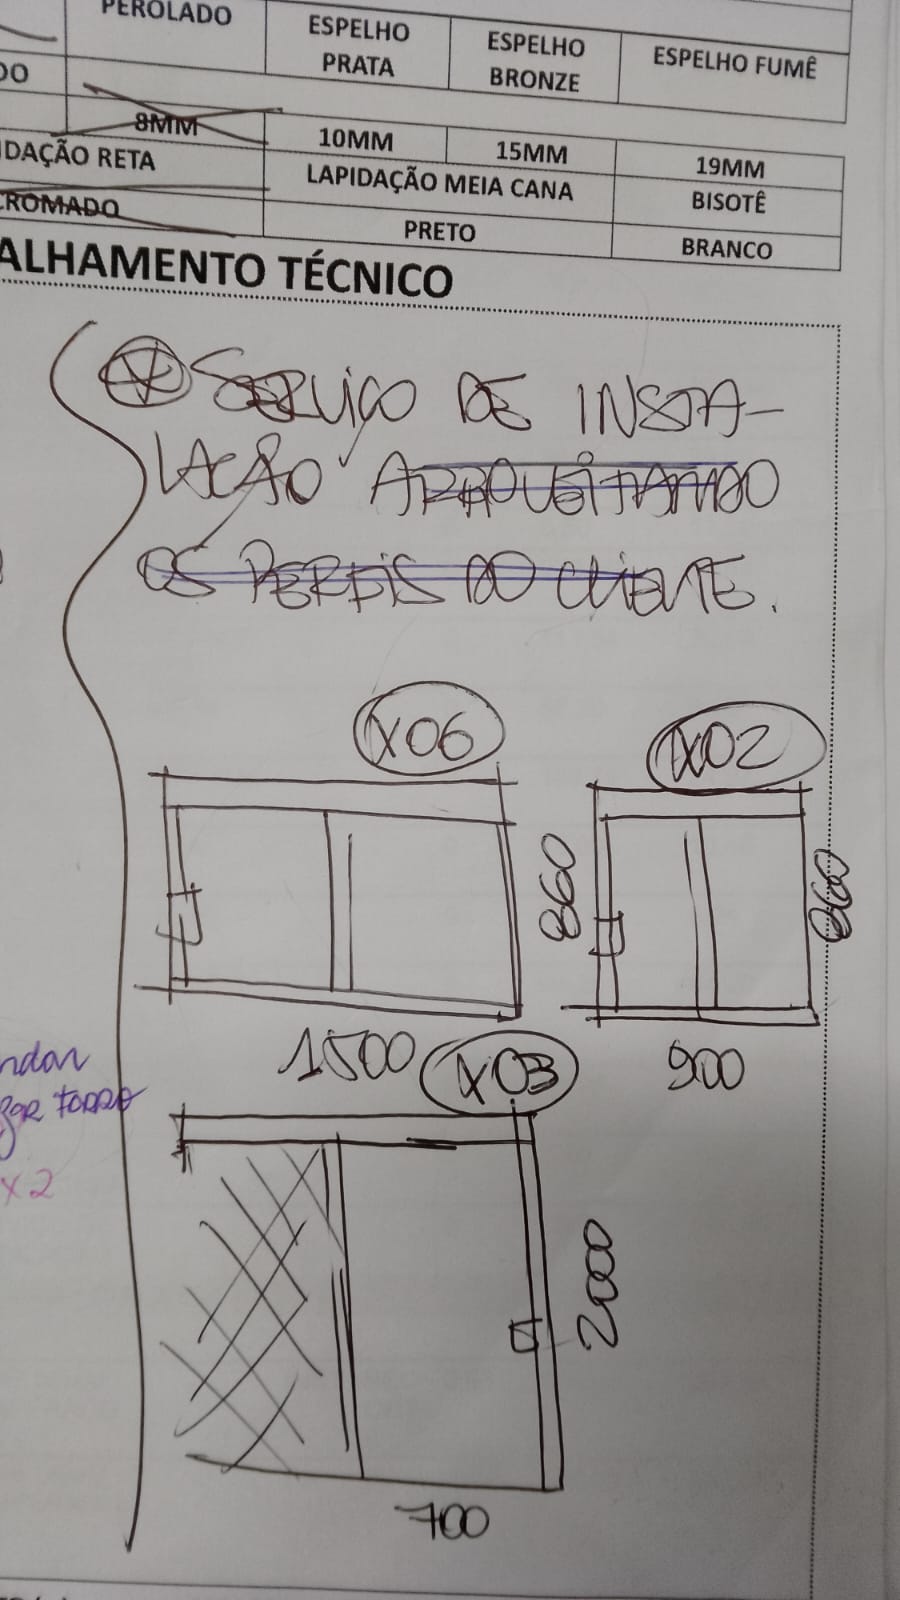 PEROLADO
ESPELHO PRATA
ESPELHO BRONZE
ESPELHO FUMÊ
DO
8MM
10MM
15MM
19MM
DAÇÃO RETA
LAPIDAÇÃO MEIA CANA
BISOTÊ
CROMADO
PRETO
BRANCO
ALHAMENTO TÉCNICO
SERVIÇO DE INSTA-
LAÇÃO APROVEITANDO
OS PERFIS DO CLIENTE.
X06
X02
860
860
1500
900
X03
ndar
FORRO
x2
2000
700